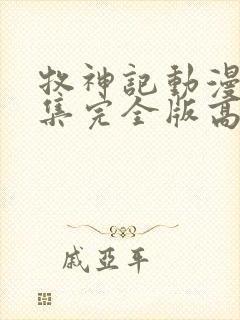 牧神記動漫
集完全版高
戚亞平